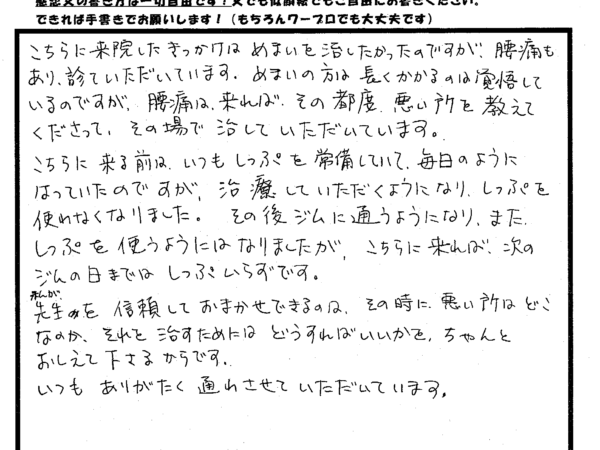 感想文の書き方は一切自由です！文でも似顔絵でもご自由にお書きください。
できれば手書きでお願いします！（もちろんワープロでも大丈夫です）
こちらに来院したきっかけは めまいを治したかったのですが、腰痛も
あり、診ていただいています。めまいの方は長くかかるのは覚悟して
いるのですが、腰痛は、来れば、その都度、悪い所を教えて
くださって、その場で治していただいています。
こちらに来る前は、いつもしっぷを常備していて、毎日のように
はっていたのですが、治癒していただくようになり、しっぷを
使わなくなりました。その後ジムに通うようになり、また、
しっぷを使うようにはなりましたが、こちらに来れば、次の
ジムの日まではしっぷいらずです。
先生を信頼しておまかせできるのは、その時に、悪い所はどこ
なのか、それを治すためにはどうすればいいかを、ちゃんと
おしえて下さるからです。
いつもありがたく通わせていただいています。